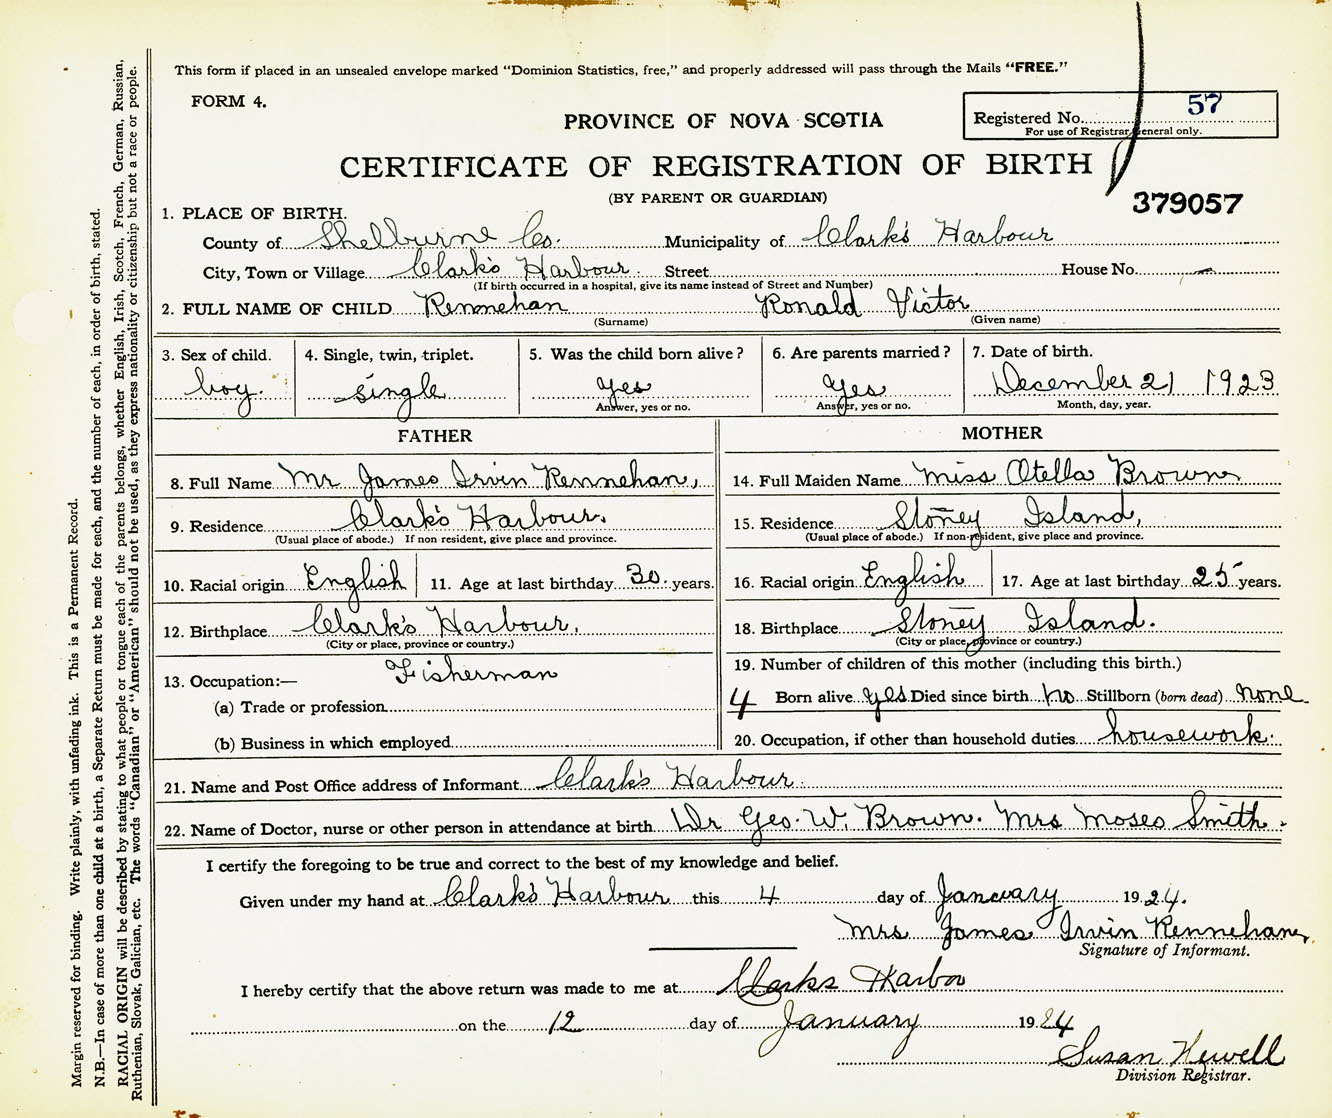 This form if placed in an unsealed envelope marked "Dominion Statistics, free," and properly addressed will pass through the Mails "FREE."
FORM 4.
PROVINCE OF NOVA SCOTIA
Registered No. 57
For use of Registrar General only.
CERTIFICATE OF REGISTRATION OF BIRTH
(BY PARENT OR GUARDIAN)
379057
1. PLACE OF BIRTH.
County of Shelburne Co. Municipality of Clark's Harbour
City, Town or Village Clark's Harbour. Street House No. —
(If birth occurred in a hospital, give its name instead of Street and Number)
2. FULL NAME OF CHILD Rennehan Ronald Victor
(Surname) (Given name)
3. Sex of child. 4. Single, twin, triplet. 5. Was the child born alive? 6. Are parents married? 7. Date of birth.
boy. single Yes Yes December 21 1923
Answer, yes or no. Answer, yes or no. Month, day, year.
FATHER MOTHER
8. Full Name Mr James Irvin Rennehan, 14. Full Maiden Name Miss Otella Brown
9. Residence Clark's Harbour. 15. Residence Stoney Island,
(Usual place of abode.) If non resident, give place and province. (Usual place of abode.) If non-resident, give place and province.
10. Racial origin English 11. Age at last birthday 30 years. 16. Racial origin English 17. Age at last birthday 25 years.
12. Birthplace Clark's Harbour. 18. Birthplace Stoney Island.
(City or place, province or country.) (City or place, province or country.)
13. Occupation:— Fisherman 19. Number of children of this mother (including this birth.)
(a) Trade or profession 4 Born alive yes Died since birth no Stillborn (born dead) none
(b) Business in which employed 20. Occupation, if other than household duties housework.
21. Name and Post Office address of Informant Clark's Harbour.
22. Name of Doctor, nurse or other person in attendance at birth Dr Geo. W. Brown. Mrs Moses Smith.
I certify the foregoing to be true and correct to the best of my knowledge and belief.
Given under my hand at Clark's Harbour this 4 day of January 1924.
Mrs James Irvin Rennehan,
Signature of Informant.
I hereby certify that the above return was made to me at Clarks Harbor
on the 12 day of January 1924
Susan Newell
Division Registrar.
Margin reserved for binding. Write plainly, with unfading ink. This is a Permanent Record.
N.B.—In case of more than one child at a birth, a Separate Return must be made for each, and the number of each, in order of birth, stated.
RACIAL ORIGIN will be described by stating to what people or tongue each of the parents belongs, whether English, Irish, Scotch, French, German, Russian,
Ruthenian, Slovak, Galician, etc. The words "Canadian" or "American" should not be used, as they express nationality or citizenship but not a race or people.